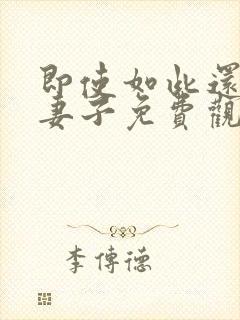 即使如此還
妻子免費觀
李傳德